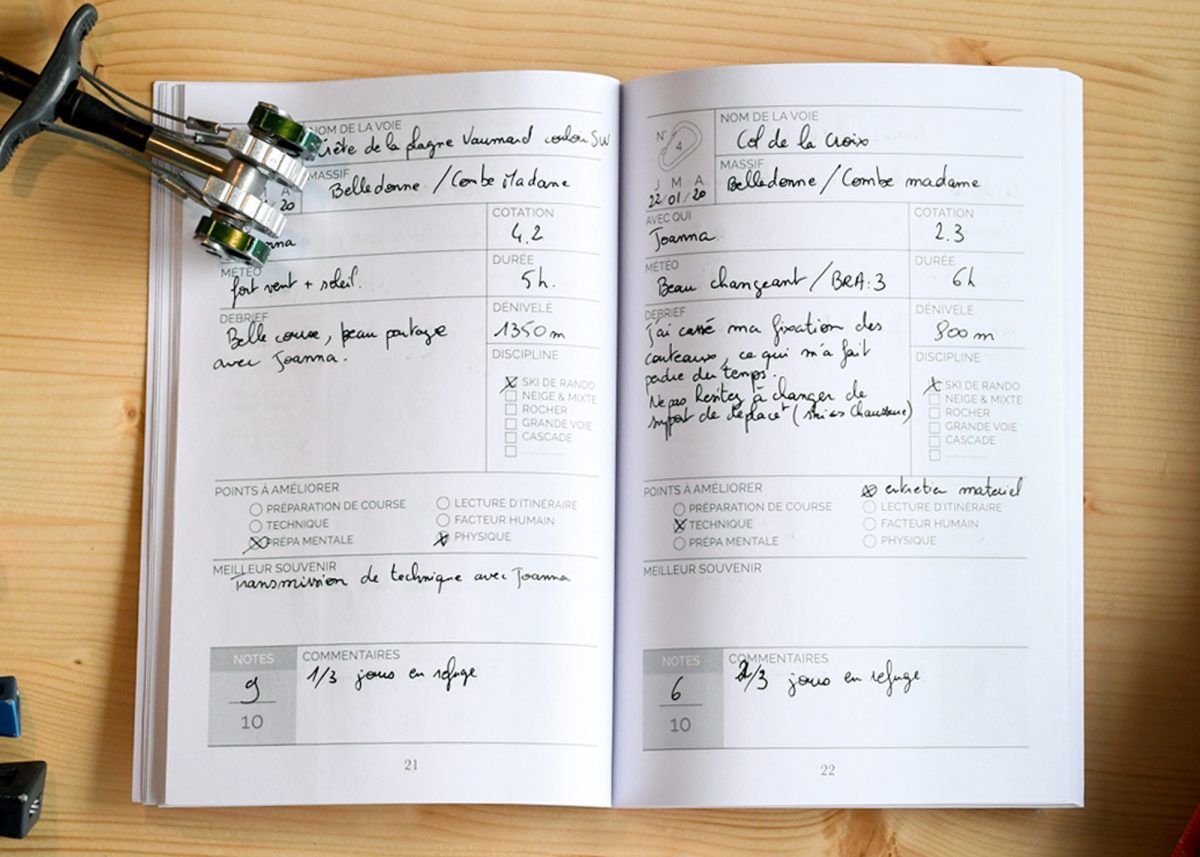 NOM DE LA VOIE
Crête de la plagne Vaumard couloir SW
MASSIF
Belledonne / Combe Madame
A
20
nna
COTATION
4.2
MÉTÉO
fort vent + soleil.
DURÉE
5h.
DEBRIEF
Belle course, beau partage
avec Joanna.
DÉNIVELÉ
1350 m
DISCIPLINE
SKI DE RANDO
NEIGE & MIXTE
ROCHER
GRANDE VOIE
CASCADE
POINTS À AMÉLIORER
PRÉPARATION DE COURSE
TECHNIQUE
PRÉPA MENTALE
LECTURE D'ITINÉRAIRE
FACTEUR HUMAIN
PHYSIQUE
MEILLEUR SOUVENIR
Transmission de technique avec Joanna
NOTES
9
10
COMMENTAIRES
1/3 jours en refuge
21
N°
4
J M A
22/01/20
NOM DE LA VOIE
Col de la Croix
MASSIF
Belledonne / Combe madame
AVEC QUI
Joanna
COTATION
2.3
MÉTÉO
Beau changeant / BRA: 3
DURÉE
6h
DEBRIEF
J'ai cassé ma fixation des
couteaux, ce qui m'a fait
perdre du temps.
Ne pas hesitez à changer de
support de deplact (skis chaussure)
DÉNIVELÉ
800 m
DISCIPLINE
SKI DE RANDO
NEIGE & MIXTE
ROCHER
GRANDE VOIE
CASCADE
POINTS À AMÉLIORER
PRÉPARATION DE COURSE
TECHNIQUE
PRÉPA MENTALE
entretien materiel
LECTURE D'ITINÉRAIRE
FACTEUR HUMAIN
PHYSIQUE
MEILLEUR SOUVENIR
NOTES
6
10
COMMENTAIRES
2/3 jours en refuge
22